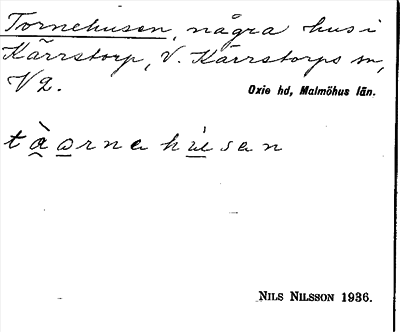 Tornehusen, några hus i
Kärrstorp, V. Kärrstorps sn,
V2.
Oxie hd, Malmöhus län.
NILS NILSSON 1936.